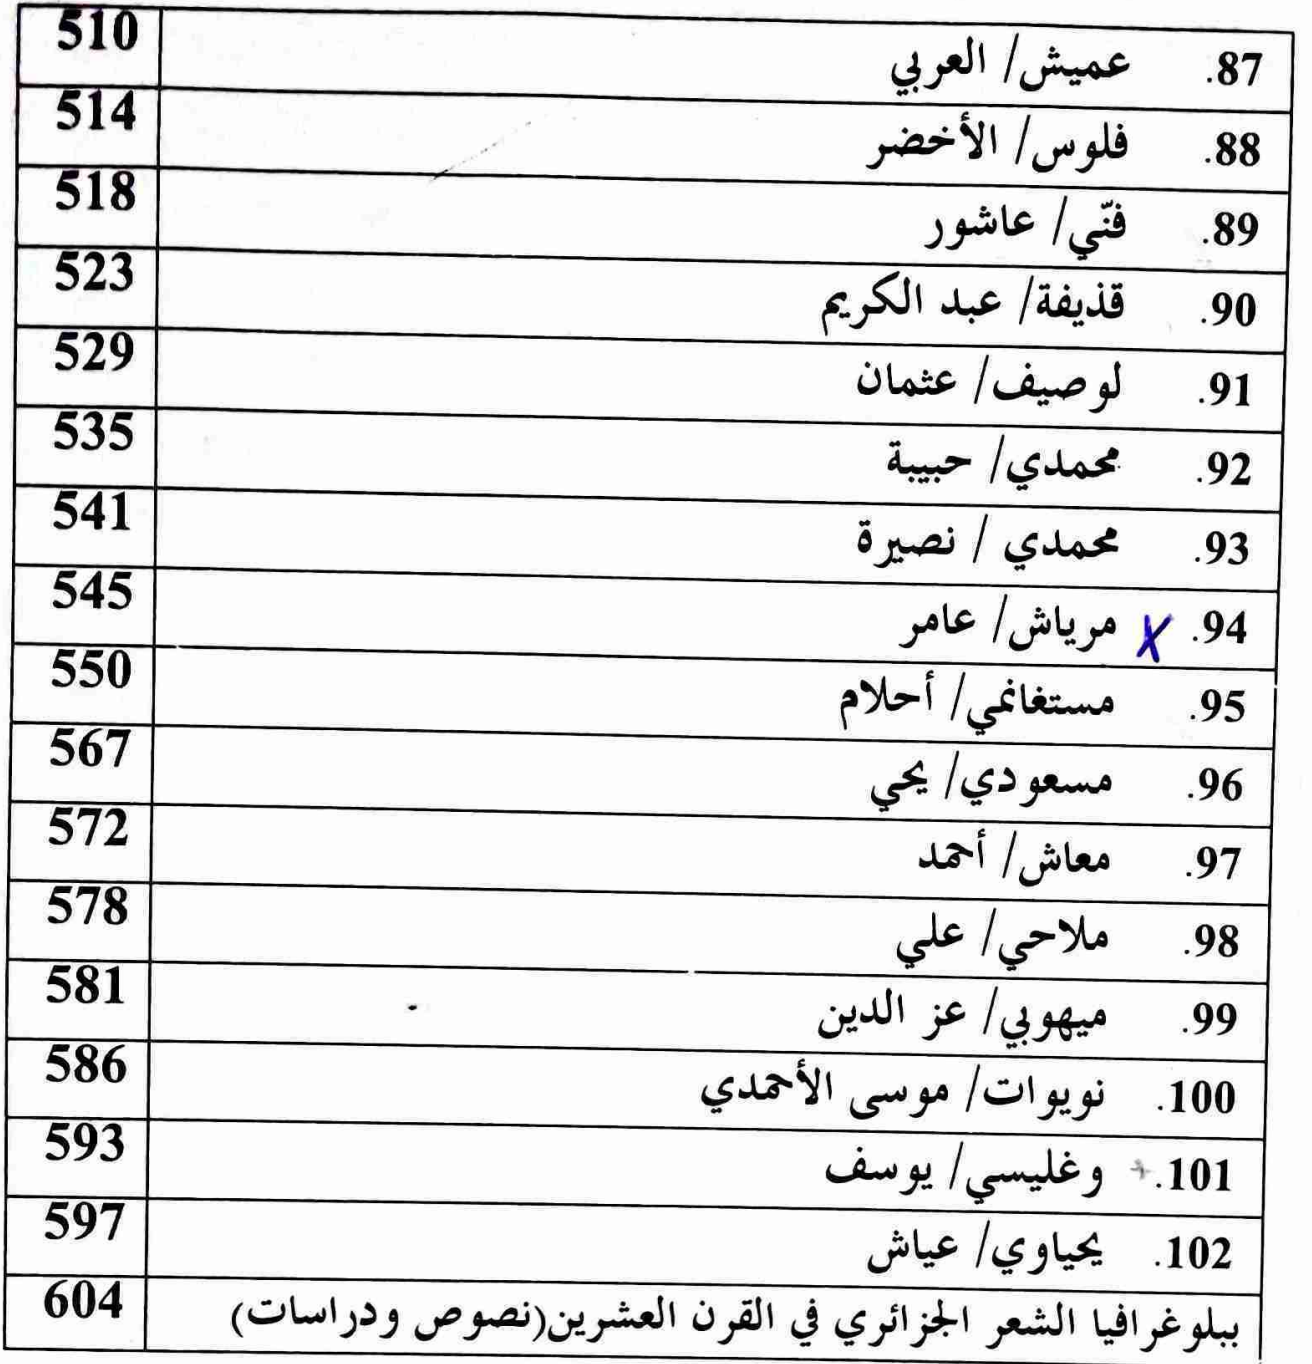 87. عميش/ العربي 510
88. فلوس/ الأخضر 514
89. فنّي/ عاشور 518
90. قذيفة/ عبد الكريم 523
91. لوصيف/ عثمان 529
92. محمدي/ حبيبة 535
93. محمدي / نصيرة 541
94. X مرياش/ عامر 545
95. مستغانمي/ أحلام 550
96. مسعودي/ يحي 567
97. معاش/ أحمد 572
98. ملاحي/ علي 578
99. ميهوبي/ عز الدين 581
100. نويوات/ موسى الأحمدي 586
101. وغليسي/ يوسف 593
102. يحياوي/ عياش 597
ببلوغرافيا الشعر الجزائري في القرن العشرين(نصوص ودراسات) 604